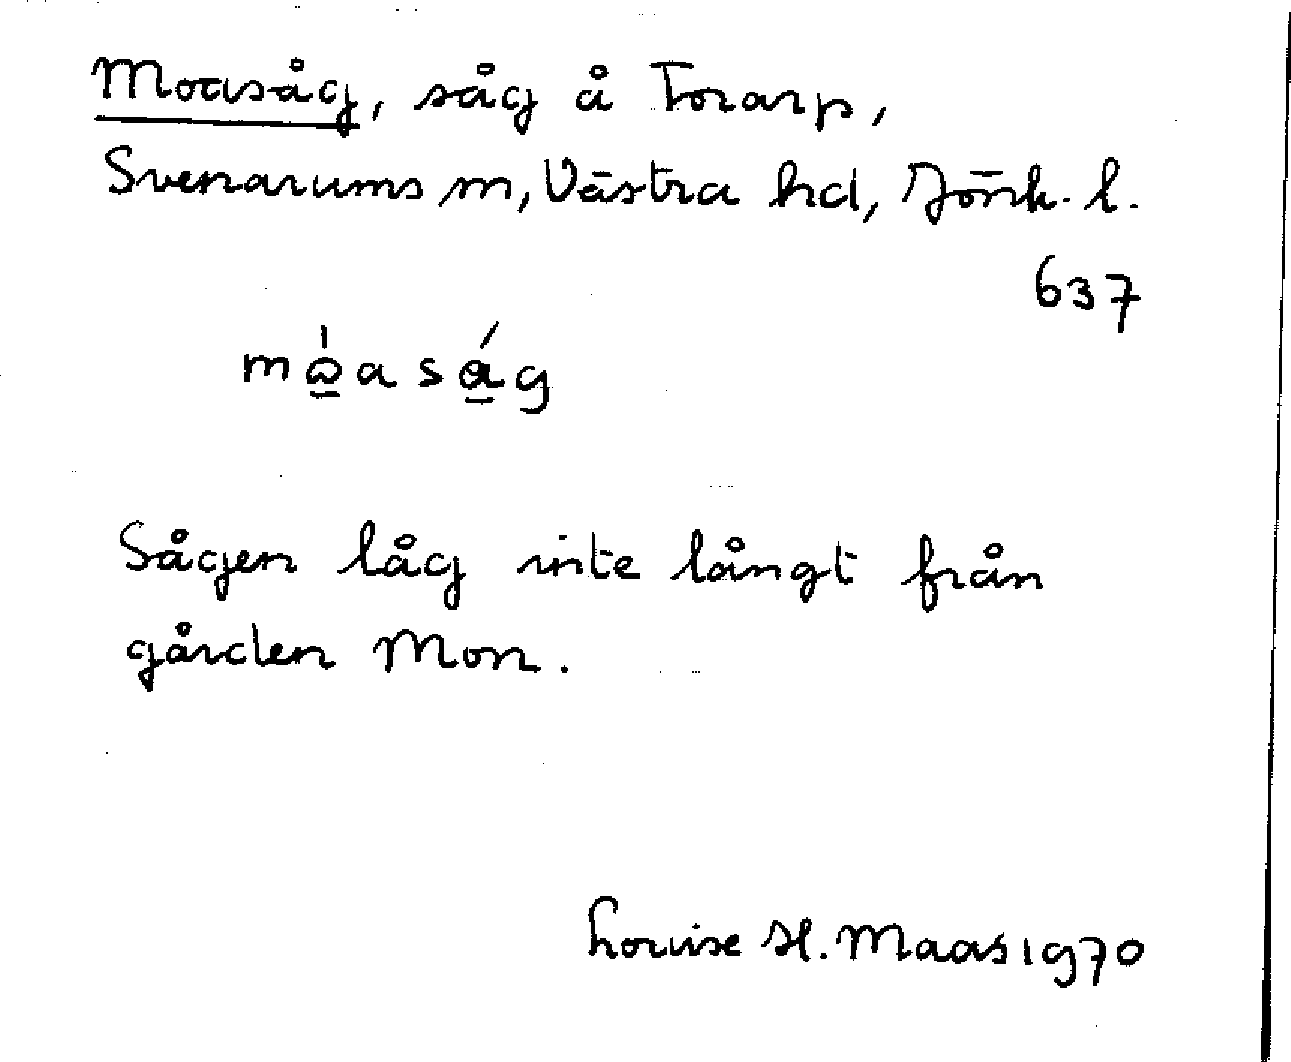 Moasåg, såg å Torarp,
Svenarums sn, Västra hd, Jönk. l.
637
Sågen låg inte långt från
gården Mon.
Louise H. Maas 1970